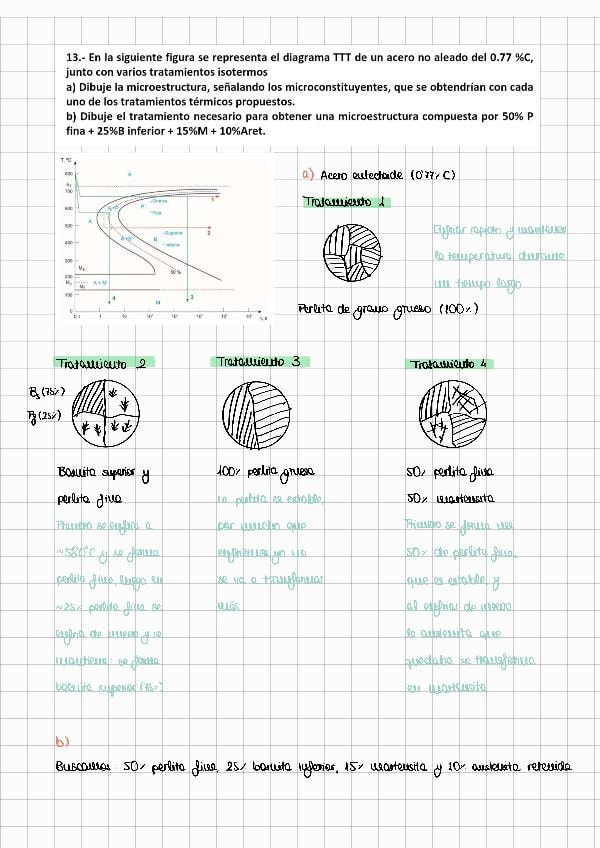 13.- En la siguiente figura se representa el diagrama TTT de un acero no aleado del 0.77 %C,
junto con varios tratamientos isotermos
a) Dibuje la microestructura, señalando los microconstituyentes, que se obtendrían con cada
uno de los tratamientos térmicos propuestos.
b) Dibuje el tratamiento necesario para obtener una microestructura compuesta por 50% P
fina + 25%B inferior + 15%M + 10%Aret.
T, °C
800
A
A1
700
600
500
400
300
200
100
0
Gruesa
P
Fina
A
A+B
B
Superior
Inferior
Ms
A + M
50 %
M
1
2
3
4
0.1
1
10
a) Acero eutectoide (0'77% C)
Tratamiento 1
Enfriar rápido y mantener
la temperatura durante
un tiempo largo
Perlita de grano grueso (100%)
Tratamiento 2
Bs (75%)
Pf (25%)
Bainita superior y
perlita fina
Primero se enfría a
~580°C y se forma
perlita fina, luego en
~25% perlita fina se
enfría de nuevo y se
mantiene: se forma
bainita superior (75%)
Tratamiento 3
100% perlita gruesa
La perlita es estable,
por mucho que
enfriemos ya no
se va a transformar
más
Tratamiento 4
50% perlita fina
50% martensita
Primero se forma un
50% de perlita fina,
que es estable, y
al enfriar de nuevo
la austenita que
quedaba se transforma
en martensita
b)
Buscamos: 50% perlita fina, 25% bainita inferior, 15% martensita y 10% austenita retenida